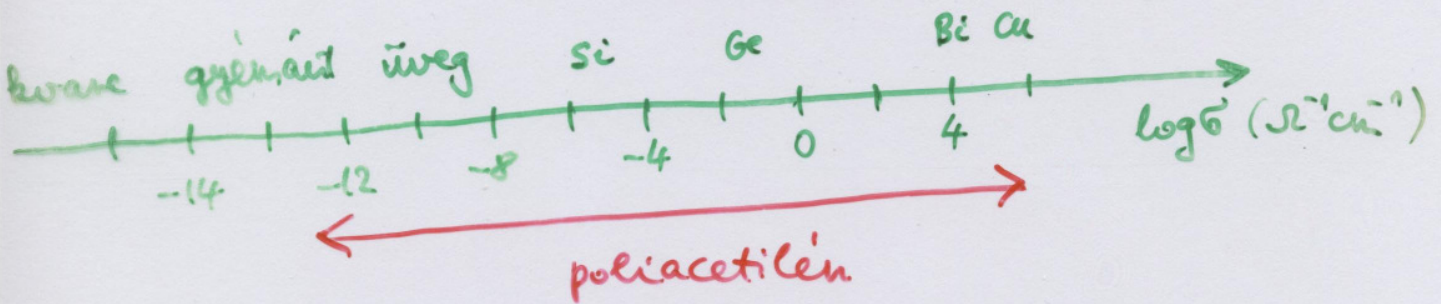 kvarc gyémánt üveg Si Ge Bi Cu
-14 -12 -8 -4 0 4 logσ (Ω⁻¹cm⁻¹)
poliacetilén